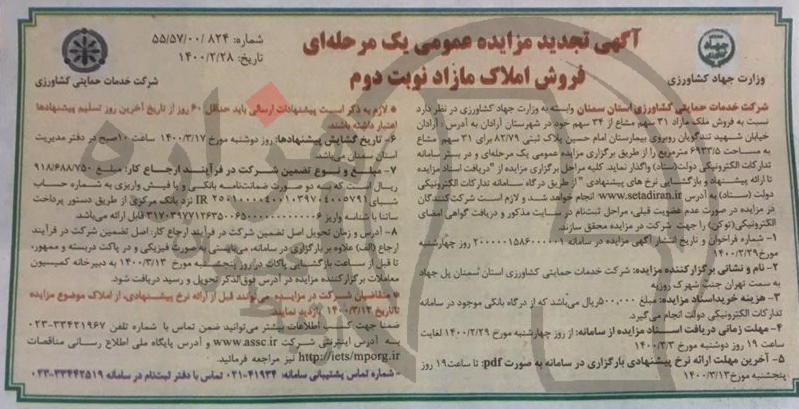 آگهی تجدید مزایده عمومی یک مرحله‌ای
فروش املاک مازاد نوبت دوم
شماره: ۵۵/۵۷/۰۰/۸۲۴
تاریخ: ۱۴۰۰/۲/۲۸
وزارت جهاد کشاورزی
شرکت خدمات حمایتی کشاورزی
شرکت خدمات حمایتی کشاورزی استان سمنان وابسته به وزارت جهاد کشاورزی در نظر دارد
نسبت به فروش ملک مازاد ۳۱ سهم مشاع از ۳۴ سهم خود در شهرستان آرادان به آدرس: آرادان
خیابان شهید تندگویان روبروی بیمارستان امام حسین پلاک ثبتی ۸۲/۷۹ برای ۳۱ سهم مشاع
به مساحت ۶۹۳۳/۵ مترمربع را از طریق برگزاری مزایده عمومی یک مرحله‌ای و در بستر سامانه
تدارکات الکترونیکی دولت(ستاد) واگذار نماید. کلیه مراحل برگزاری مزایده از "دریافت اسناد مزایده
تا ارائه پیشنهاد و بازگشایی نرخ های پیشنهادی" از طریق درگاه سامانه تدارکات الکترونیکی
دولت (ستاد) به آدرس www.setadiran.ir انجام خواهد شد. و لازم است شرکت‌کنندگان
در مزایده در صورت عدم عضویت قبلی، مراحل ثبت‌نام در سایت مذکور و دریافت گواهی امضای
الکترونیکی(توکن) را جهت شرکت در مزایده محقق سازند.
۱- شماره فراخوان و تاریخ انتشار آگهی مزایده در سامانه ۲۰۰۰۰۰۱۵۸۶۰۰۰۰۰۱ روز چهارشنبه
مورخ ۱۴۰۰/۲/۲۹
۲- نام و نشانی برگزار کننده مزایده: شرکت خدمات حمایتی کشاورزی استان سمنان پل جهاد
به سمت تهران جنب شهرک روزیه
۳- هزینه خرید اسناد مزایده: مبلغ ۵۰۰,۰۰۰ ریال می‌باشد که از درگاه بانکی موجود در سامانه
تدارکات الکترونیکی دولت انجام می‌گیرد.
۴- مهلت زمانی دریافت اسناد مزایده از سامانه: از روز چهارشنبه مورخ ۱۴۰۰/۲/۲۹ لغایت
ساعت ۱۹ روز دوشنبه مورخ ۱۴۰۰/۳/۳
۵- آخرین مهلت ارائه نرخ پیشنهادی بارگزاری در سامانه به صورت pdf: تا ساعت ۱۹ روز
پنجشنبه مورخ ۱۴۰۰/۳/۱۳
* لازم به ذکر است پیشنهادات ارسالی باید حداقل ۶۰ روز از تاریخ آخرین روز تسلیم پیشنهادها
اعتبار داشته باشند.
۶- تاریخ گشایش پیشنهادها: روز دوشنبه مورخ ۱۴۰۰/۳/۱۷ ساعت ۱۰ صبح در دفتر مدیریت
استان سمنان می‌باشد.
۷- مبلغ و نوع تضمین شرکت در فرآیند ارجاع کار: مبلغ ۹۱۸/۶۸۸/۷۵۰
ریال است که به دو صورت ضمانت‌نامه بانکی و یا فیش واریزی به شماره حساب
شبای IR نزد بانک مرکزی از طریق دستور پرداخت
ساتنا با شناسه واریز قابل ارائه می‌باشد.
۸- آدرس و زمان تحویل اصل تضمین شرکت در فرآیند ارجاع کار: اصل تضمین شرکت در فرآیند
ارجاع (الف) علاوه بر بارگزاری در سامانه، می‌بایستی به صورت فیزیکی و در پاکت دربسته و ممهور،
تا قبل از ساعت بازگشایی پاکات در روز پنجشنبه مورخ ۱۴۰۰/۳/۱۳ به دبیرخانه کمیسیون
معاملات برگزار کننده مزایده در آدرس فوق‌الذکر تحویل و رسید دریافت شود.
* متقاضیان شرکت در مزایده می‌توانند قبل از ارائه نرخ پیشنهادی، از املاک موضوع مزایده
تا تاریخ ۱۴۰۰/۳/۱۲ بازدید نمایند.
ضمنا جهت کسب اطلاعات بیشتر می‌توانید ضمن تماس با شماره تلفن ۰۲۳-۳۳۴۳۱۹۶۷
به آدرس اینترنتی شرکت www.assc.ir و آدرس پایگاه ملی اطلاع رسانی مناقصات
http://iets/mporg.ir نیز مراجعه فرمائید.
- شماره تماس پشتیبانی سامانه: ۴۱۹۳۴-۰۲۱ تماس با دفتر ثبت‌نام در سامانه ۳۳۴۴۲۵۱۹-۰۲۳